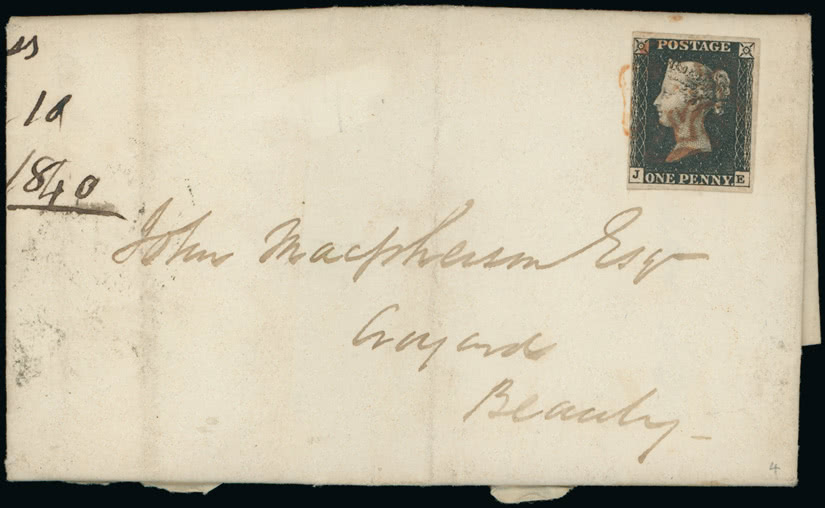 10
1840
POSTAGE
J ONE PENNY E
John Macpherson Esqr
Croyard
Beauly
4